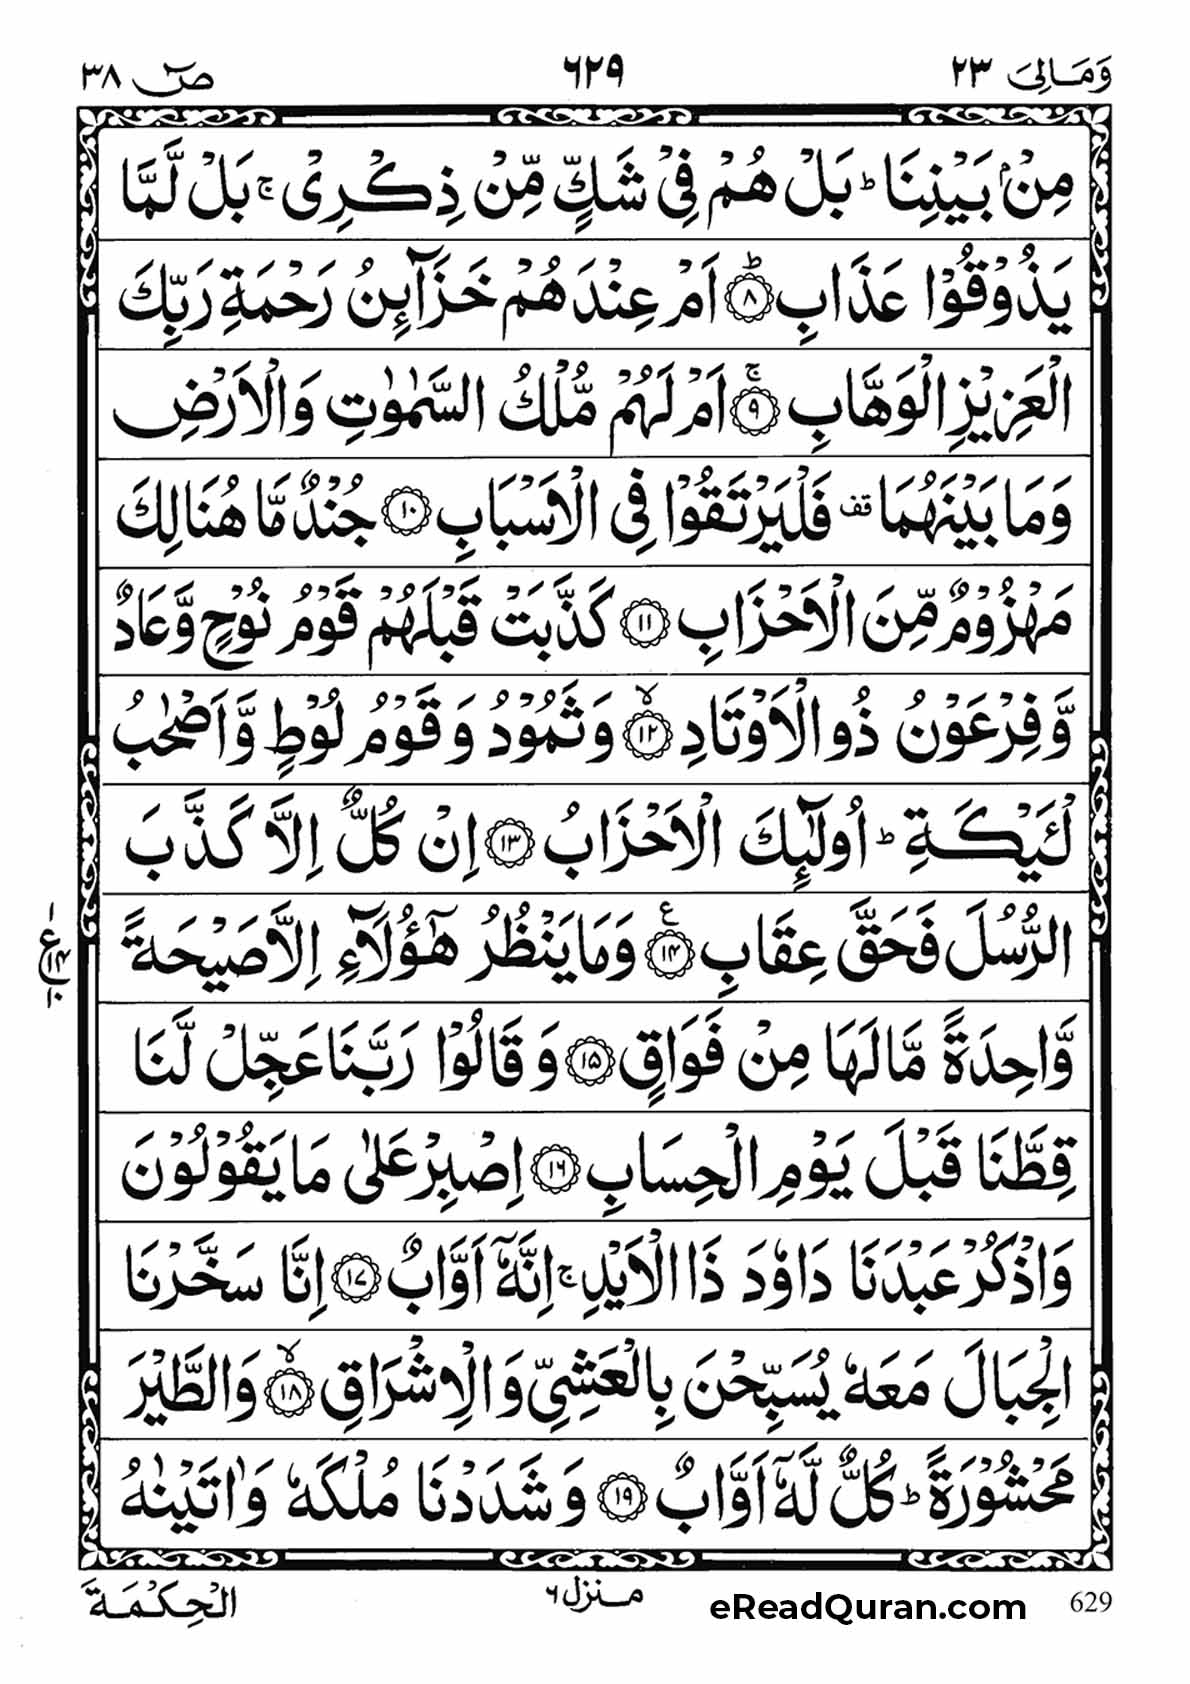 وَمَالِیَ ٢٣
٦٢٩
صٓ ٣٨
مِنْۢ بَيْنِنَا ؕ بَلْ هُمْ فِىْ شَكٍّ مِّنْ ذِكْرِىْ ۚ بَلْ لَّمَّا
يَذُوْقُوْا عَذَابِ ؕ‏ ﴿۸﴾ اَمْ عِنْدَهُمْ خَزَآٮِٕنُ رَحْمَةِ رَبِّكَ
الْعَزِيْزِ الْوَهَّابِ‌ ۚ‏ ﴿۹﴾ اَمْ لَهُمْ مُّلْكُ السَّمٰوٰتِ وَالْاَرْضِ
وَمَا بَيْنَهُمَا ۫ قف فَلْيَرْتَقُوْا فِى الْاَسْبَابِ‏ ﴿۱۰﴾ جُنْدٌ مَّا هُنَالِكَ
مَهْزُوْمٌ مِّنَ الْاَحْزَابِ‏ ﴿۱۱﴾ كَذَّبَتْ قَبْلَهُمْ قَوْمُ نُوْحٍ وَّعَادٌ
وَّفِرْعَوْنُ ذُو الْاَوْتَادِ ۙ‏ ﴿۱۲﴾ وَثَمُوْدُ وَقَوْمُ لُوْطٍ وَّاَصْحٰبُ
لْئَيْكَةِ‌ ؕ اُولٰٓٮِٕكَ الْاَحْزَابُ‏ ﴿۱۳﴾ اِنْ كُلٌّ اِلَّا كَذَّبَ
الرُّسُلَ فَحَقَّ عِقَابِ‏ ﴿۱۴﴾ ع وَمَا يَنْظُرُ هٰٓؤُلَاۤءِ اِلَّا صَيْحَةً
١
ع ١٤
١٠
وَّاحِدَةً مَّا لَهَا مِنْ فَوَاقٍ‏ ﴿۱۵﴾ وَقَالُوْا رَبَّنَا عَجِّلْ لَّنَا
قِطَّنَا قَبْلَ يَوْمِ الْحِسَابِ‏ ﴿۱۶﴾ اِصْبِرْ عَلٰى مَا يَقُوْلُوْنَ
وَاذْكُرْ عَبْدَنَا دَاوٗدَ ذَا الْاَيْدِ‌ ۚ اِنَّهٗۤ اَوَّابٌ‏ ﴿۱۷﴾ اِنَّا سَخَّرْنَا
الْجِبَالَ مَعَهٗ يُسَبِّحْنَ بِالْعَشِىِّ وَالْاِشْرَاقِ ۙ‏ ﴿۱۸﴾ وَالطَّيْرَ
مَحْشُوْرَةً‌ ؕ كُلٌّ لَّهٗۤ اَوَّابٌ‏ ﴿۱۹﴾ وَشَدَدْنَا مُلْكَهٗ وَاٰتَيْنٰهُ
الْحِكْمَةَ
منزل ٦
eReadQuran.com
629